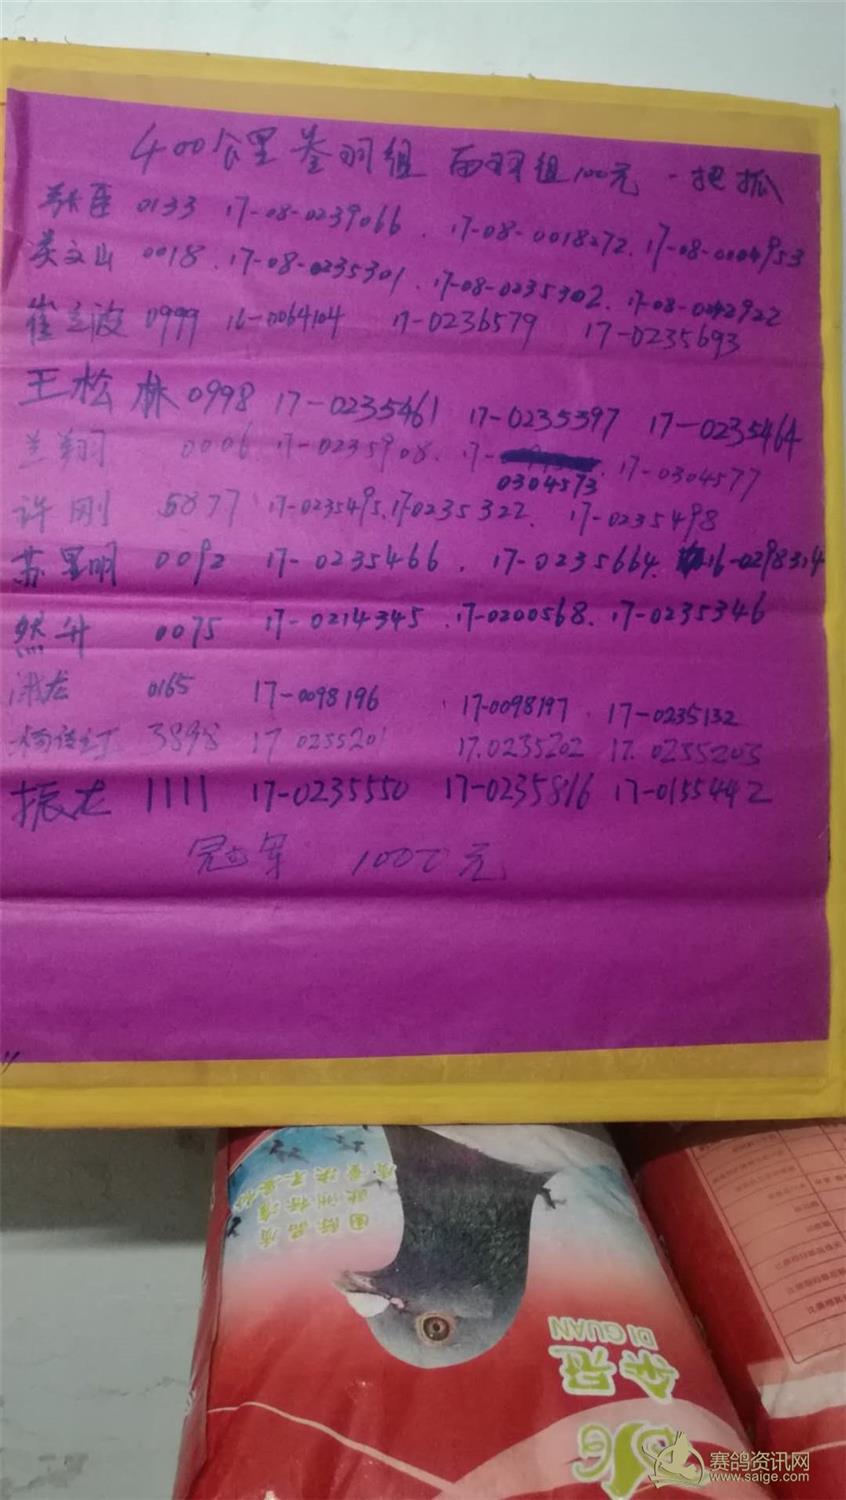 400公里 羽组 羽组100元 一把抓
0133 17-08-0239066. 17-08-0018272. 17-08-0004953
文山 0018. 17-08-0235301. 17-08-0235302. 17-08-0042922
崔立波 0999 16-0064104 17-0236579 17-0235693
王松林 0998 17-0235461 17-0235397 17-0235464
兰翔 0006 17-0235908. 17- 0304573. 17-0304577
许刚 5877 17-0235495. 17-0235322. 17-0235498
苏星明 0092 17-0235466. 17-0235664. 16-0298314
然升 0075 17-0214345. 17-0200568. 17-0235346
龙 0165 17-0098196 17-0098197. 17-0235132
杨 3898 17 0255201 17.0235202 17.0255203
振龙 1111 17-0235550 17-0235816 17-0155442
冠军 1000元
国际品质
欧洲标准
DI GUAN
冠
赛鸽资讯网
www.saige.com